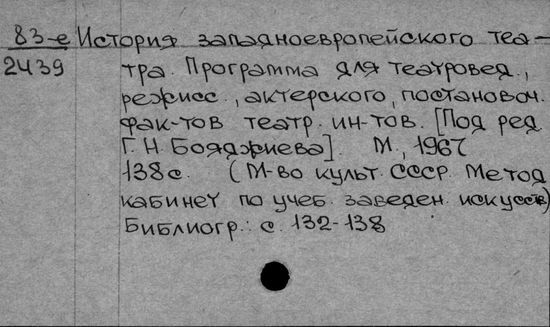 83-е История западноевропейского теа-
2439 тра. Программа для театровед.,
режисс., актерского, постановоч.
фак-тов театр. ин-тов. [Под ред
Г. Н. Бояджиева]. М., 1967
138 с. (М-во культ. СССР. Метод
кабинет по учеб. заведен. искусств)
Библиогр.: с. 132-138